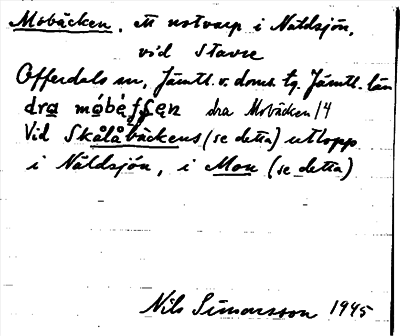 Mobäcken, ett notvarp i Näldsjön,
vid Stavre
Offerdals sn, Jämtl. v. doms. tg. Jämtl. län
dra Mobäcken /4
Vid Skålåbäckens (se detta) utlopp
i Näldsjön, i Mon (se detta)
Nils Simonsson 1945